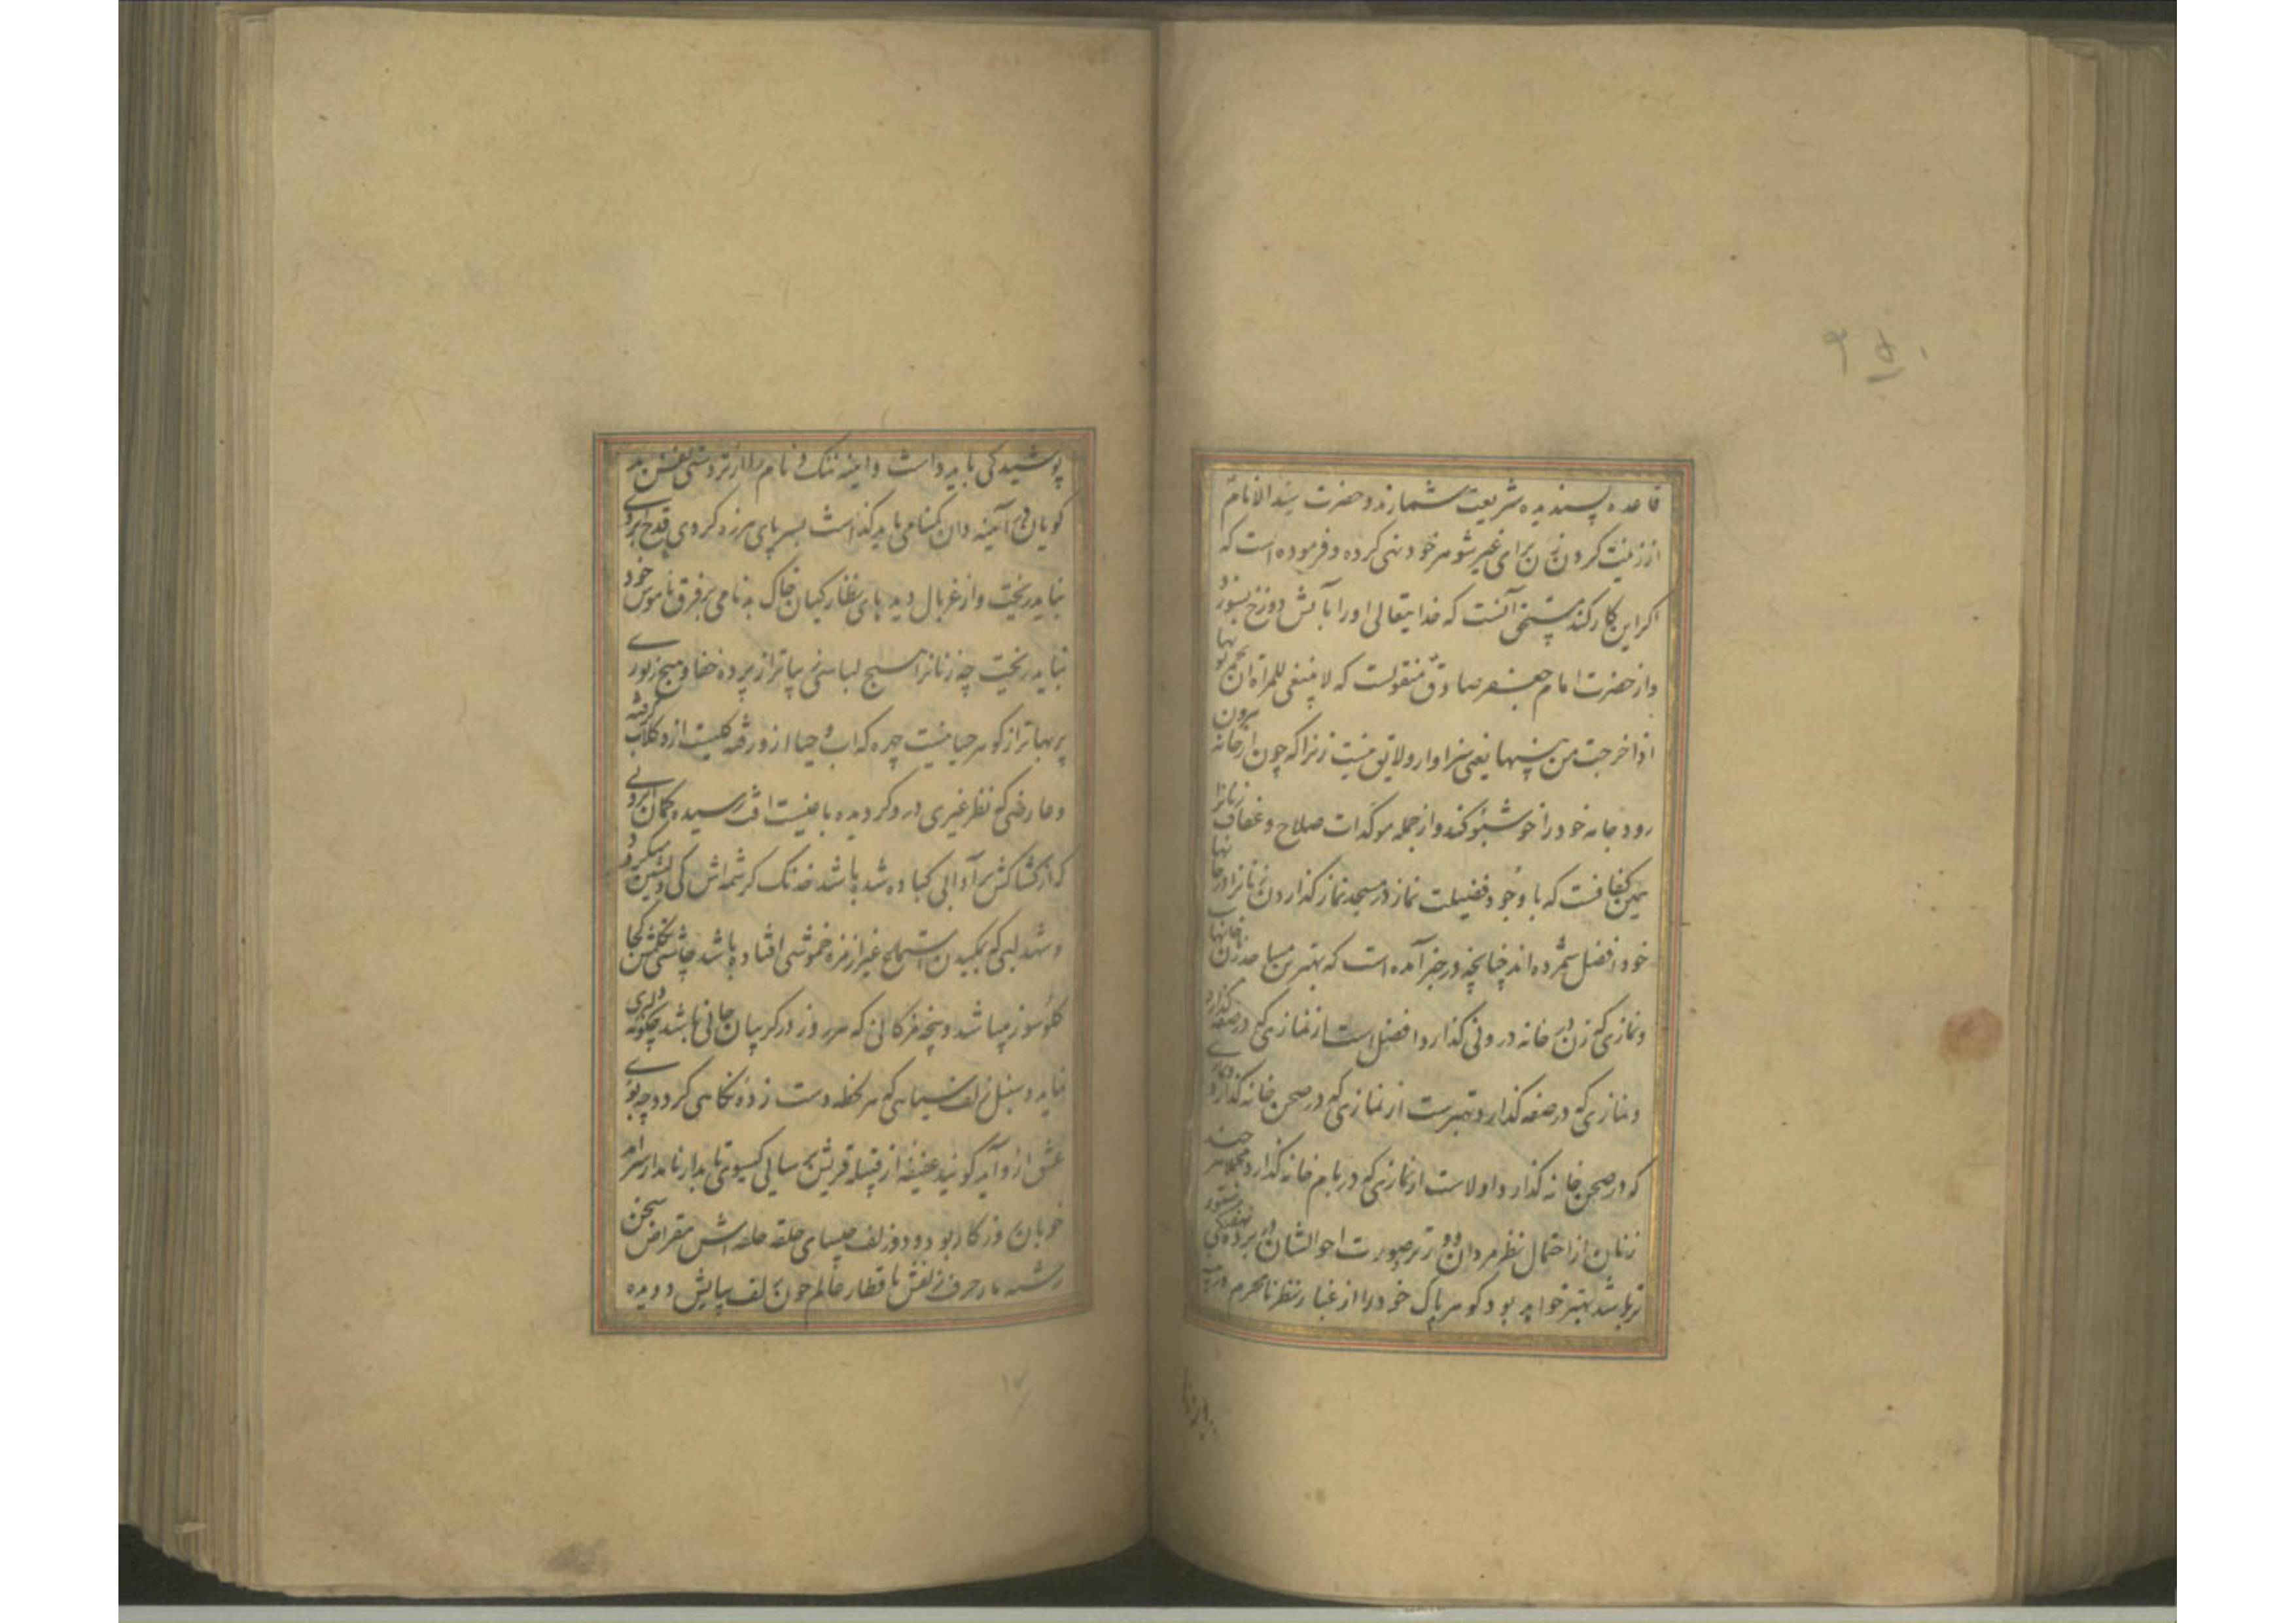 قاعده پسندیده شریعت شمارند و حضرت سید الانام
از زینت کردن زن برای غیر شوهر خود نهی کرده و فرموده است که
اکر این کار کند مستحق آنست که خدایتعالی او را بآتش دوزخ بسوزد
و از حضرت امام جعفر صادق منقولست که لا ینبغی للمراة ان تجمر ثوبها
اذا خرجت من بیتها یعنی سزاوار و لایق نیست زنرا که چون از خانه بیرون
رود جامه خود را خوشبو کند و از جمله موکدات صلاح و عفاف زنانرا
همین کفافست که با وجود فضیلت نماز در مسجد نماز کذاردن زنانرا در خانها
خود افضل شمرده اند چنانچه در خبر آمده است که بهترین مساجد زنان خانها
و نمازی که زن در خانه درونی کذارد افضل است از نمازی که در صفه کذارد
و نمازی که در صفه کذارد بهترست از نمازی که در صحن خانه کذارد و نمازی
که در صحن خانه کذارد اولاست از نمازی که در بام خانه کذارد مجملا هر چند
زنان از احتمال نظر مردان دورتر و صورت احوالشان در پرده نهفتگی مستور
تر باشد بهتر خواهد بود کوهر پاک خود را از غبار نظر نامحرم در
پوشیدکی باید داشت و اینه ننک و نام را از تردستی نفس بد
کویان در آینه دان کمنامی باید کذاشت بسر پای هرزه کردی قدح ابروی
نباید ریخت و از غربال دیدهای نظارکیان خاک بدنامی بر فرق ناموس خود
نباید ریخت چه زنانرا هیچ لباسی زیباتر از پرده خفا و هیچ زیوری
پربهاتر از کوهر حیا نیست چهره که اب و حیا ازو رفته کلیست ازو کلاب کرفته
و عارضی که نظر غیری درو کردیده باغیست افت رسیده کمان ابروئی
که از کشاکش هر آدابی کباده شده باشد خدنک کرشمه اش کی دلنشین میکردد
و شهد لبی که بمکیدن استملح غیر از مزه خموشی افتاده باشد چاشنی تکلمش کجا
کلوسوز میباشد و پنجه مژکانی که هر روز در کریبان جانی باشد چکونه دلبری
نماید و سنبل زلف سیاهی که هر لحظه دست زده نکاهی کردد چه بوی
عشق ازو آید کویند عفیفه از قبیله قریش برسایی کیسوی تابدار نامدار سرآمد
خوبان روزکار بود و دود زلف چلیپای حلقه حلقه اش مقراض سخن
رشته مار حرف زلفش با قطار عالم چون زلف بپایش دویده